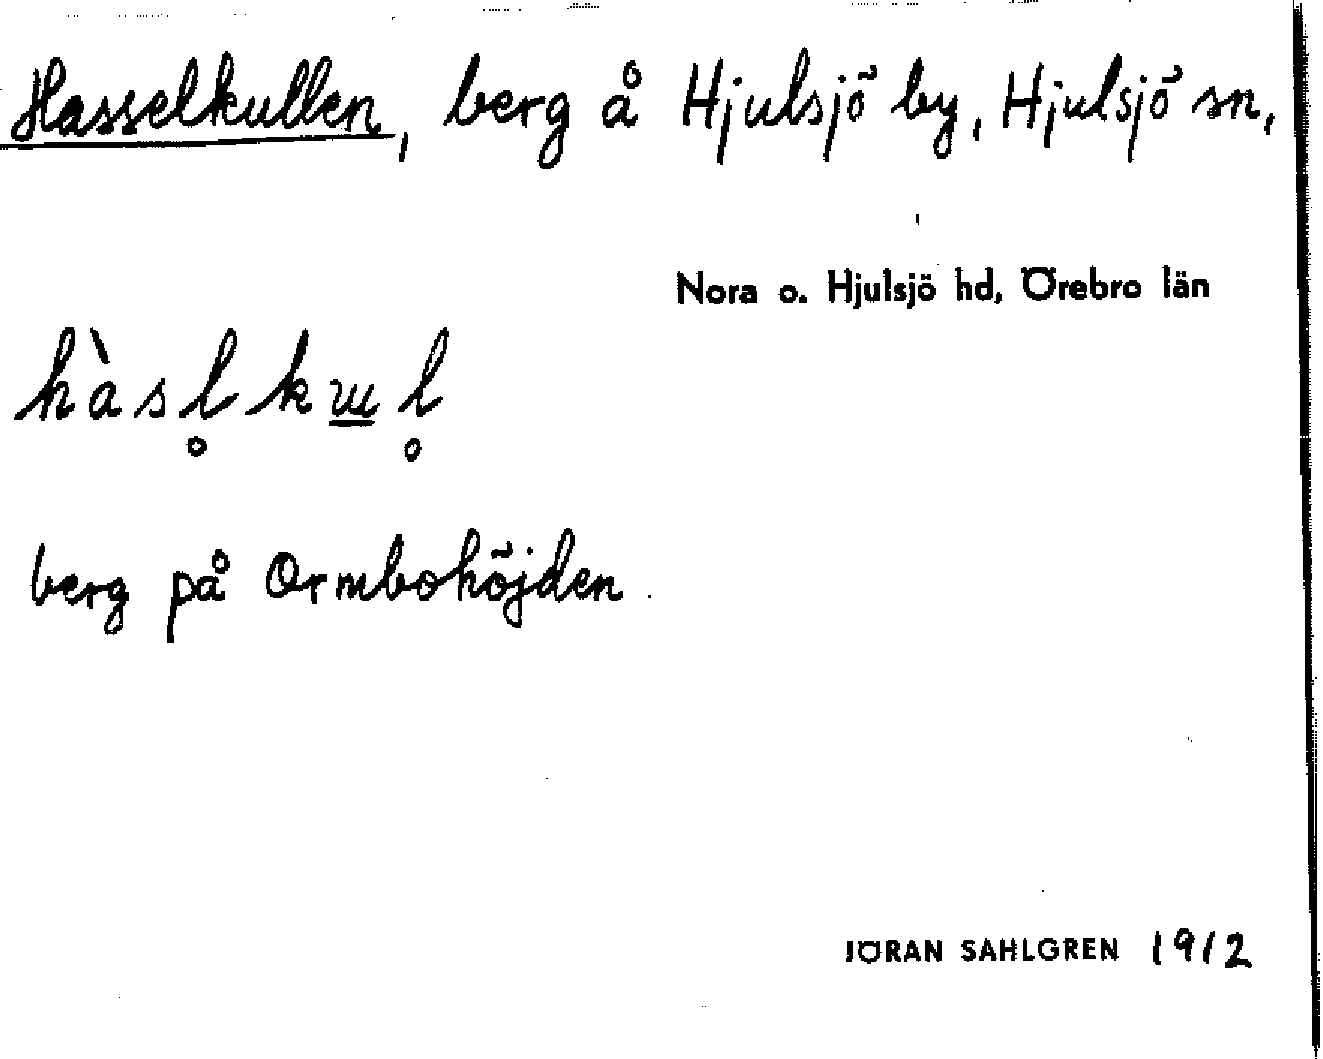 Hasselkullen, berg å Hjulsjö by, Hjulsjö sn,
Nora o. Hjulsjö hd, Örebro län
hàsl̥kɯ̲l̥
berg på Ormbohöjden.
JÖRAN SAHLGREN 1912